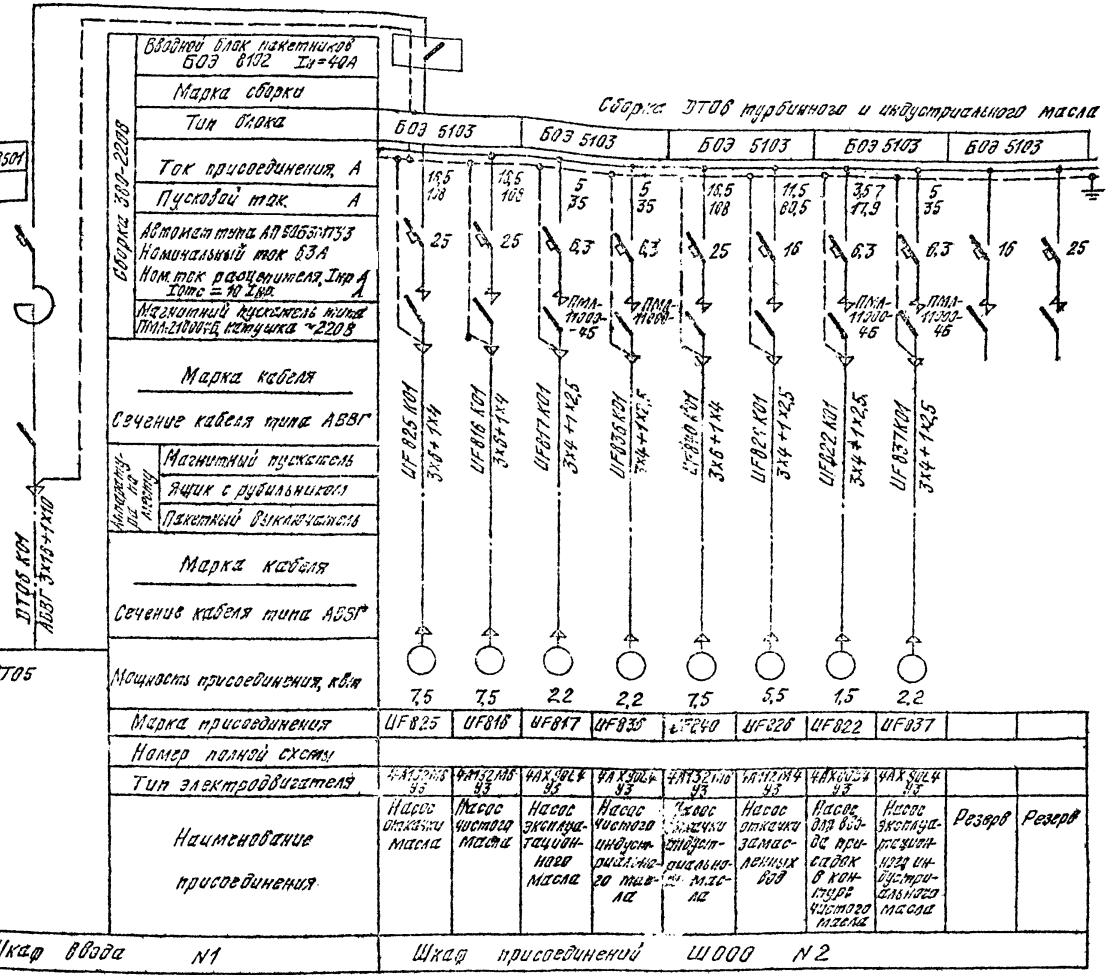 Вводной блок пакетников
БОЭ 8102 Iн=40А
Марка сборки
Сборка ДТ06 турбинного и индустриального масла
Тип блока
БОЭ 5103 БОЭ 5103 БОЭ 5103 БОЭ 5103 БОЭ 5103
Сборка 380-220В
Ток присоединения, А
18,5 5 5 18,5 11,5 3,57 5
Пусковой ток А
108 108 35 35 108 80,5 17,9 35
Автомат типа
Номинальный ток 63А
Ном. ток расцепителя, Iнр А
Iотс = 10 Iнр. А
25 25 6,3 6,3 25 16 6,3 6,3 16 25
Магнитный пускатель типа
катушка ~220В
ПМЛ-
11000-
-45
ПМЛ-
11000-
ПМЛ-
11000-
ПМЛ-
11000-
Марка кабеля
Сечение кабеля типа АВВГ
UF825 К01
3х6+1х4
UF816 К01
3х6+1х4
UF817 К01
3х4+1х2,5
UF836 К01
3х4+1х2,5
UF840 К01
3х6+1х4
UF826 К01
3х4+1х2,5
UF822 К01
3х4+1х2,5
UF837 К01
3х4+1х2,5
Аппарату-
ра по
месту
Магнитный пускатель
Ящик с рубильником
Пакетный выключатель
ДТ05 К01
АВВГ 3х16+1х10
Марка кабеля
Сечение кабеля типа АВВГ
Т05
Мощность присоединения, кВт
7,5 7,5 2,2 2,2 7,5 5,5 1,5 2,2
Марка присоединения
UF825 UF816 UF817 UF836 UF840 UF826 UF822 UF837
Номер полной схемы
Тип электродвигателя
4А132М6 4АХ90L4 4АХ90L4 4А132М6 4А112М4 4АХ90L4
У3 У3 У3 У3 У3 У3 У3 У3
Наименование
присоединения
Насос
откачки
масла
Насос
чистого
масла
Насос
эксплуа-
тацион-
ного
масла
Насос
чистого
индуст-
риально-
го мас-
ла
Насос
откачки
индуст-
риально-
го мас-
ла
Насос
откачки
замас-
ленных
вод
Насос
для вво-
да при-
садок
в кон-
туре
чистого
масла
Насос
эксплуа-
тацион-
ного ин-
дустри-
ального
масла
Резерв Резерв
Шкаф ввода N1
Шкаф присоединений ШО00 N2